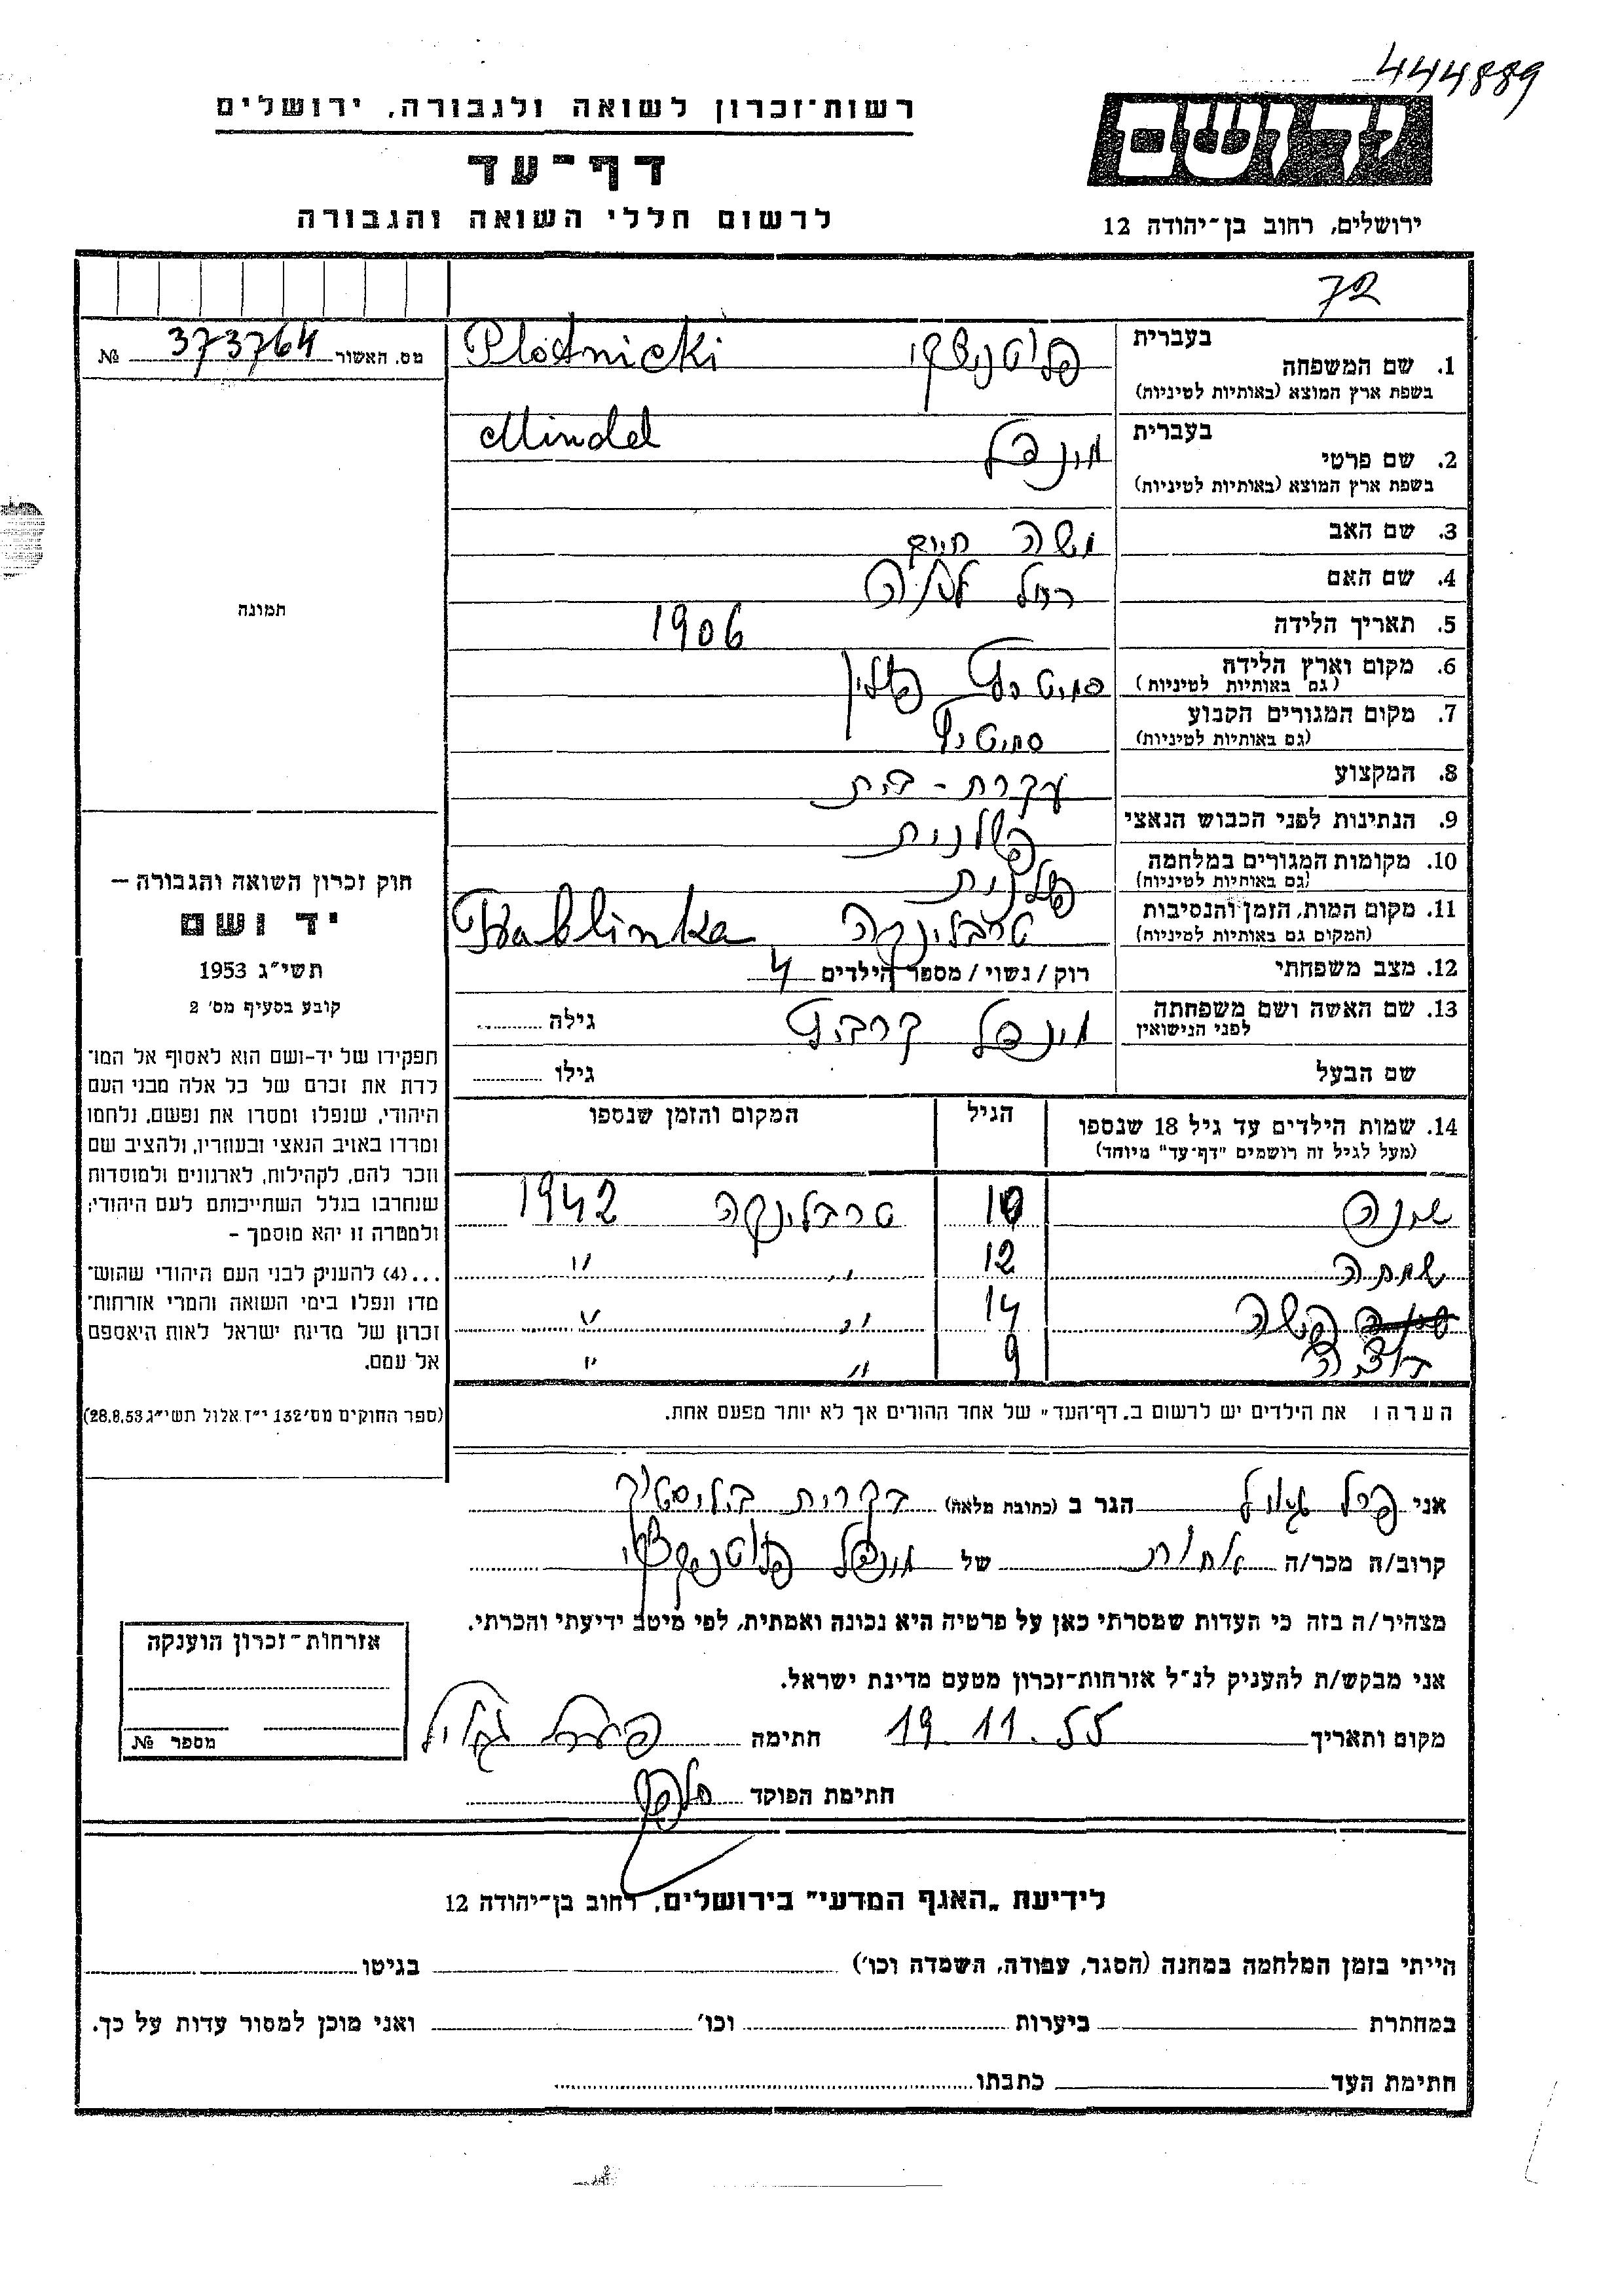 444889
רשות־זכרון לשואה ולגבורה, ירושלים
דף־עד
לרשום חללי השואה והגבורה
יד ושם
ירושלים, רחוב בן־יהודה 12
72
מס. האשור 373764 №
תמונה
חוק זכרון השואה והגבורה –
יד ושם
תשי״ג 1953
קובע בסעיף מס׳ 2
תפקידו של יד-ושם הוא לאסוף אל המו־
לדת את זכרם של כל אלה מבני העם
היהודי, שנפלו ומסרו את נפשם, נלחמו
ומרדו באויב הנאצי ובעוזריו, ולהציב שם
וזכר להם, לקהילות, לארגונים ולמוסדות
שנחרבו בגלל השתייכותם לעם היהודי;
ולמטרה זו יהא מוסמך –
...(4) להעניק לבני העם היהודי שהוש־
מדו ונפלו בימי השואה והמרי אזרחות־
זכרון של מדינת ישראל לאות היאספם
אל עמם.
(ספר החוקים מס׳ 132 י״ז אלול תשי״ג 28.8.53)
בעברית
1. שם המשפחה פלוטניצקי Plotnicki
בשפת ארץ המוצא (באותיות לטיניות)
בעברית
2. שם פרטי מינדל Mindel
בשפת ארץ המוצא (באותיות לטיניות)
3. שם האב משה חיים
4. שם האם רחל
5. תאריך הלידה 1906
6. מקום וארץ הלידה פולין
(גם באותיות לטיניות)
7. מקום המגורים הקבוע
(גם באותיות לטיניות)
8. המקצוע עקרת - בית
9. הנתינות לפני הכבוש הנאצי פולנית
10. מקומות המגורים במלחמה פולנית
(גם באותיות לטיניות)
11. מקום המות, הזמן והנסיבות טרבלינקה Trablinka
(המקום גם באותיות לטיניות)
12. מצב משפחתי רוק / נשוי / מספר הילדים 4
13. שם האשה ושם משפחתה מינדל גילה
לפני הנישואין
שם הבעל גילו
14. שמות הילדים עד גיל 18 שנספו הגיל המקום והזמן שנספו
(מעל לגיל זה רושמים "דף־עד" מיוחד)
10 טרבלינקה 1942
שמחה 12 " "
14 " "
9 " "
הערה: את הילדים יש לרשום ב„דף־העד" של אחד ההורים אך לא יותר מפעם אחת.
אני הגר ב (כתובת מלאה) בקרית ביליסטוק
קרוב/ה מכר/ה אחות של מינדל פלוטניצקי
מצהיר/ה בזה כי העדות שמסרתי כאן על פרטיה היא נכונה ואמתית, לפי מיטב ידיעתי והכרתי.
אני מבקש/ת להעניק לנ״ל אזרחות־זכרון מטעם מדינת ישראל.
מקום ותאריך 19.11.55 חתימה
חתימת הפוקד
אזרחות־זכרון הוענקה
מספר №
לידיעת „האגף המדעי" בירושלים, רחוב בן־יהודה 12
הייתי בזמן המלחמה במחנה (הסגר, עבודה, השמדה וכו׳) בגיטו
במחתרת ביערות וכו׳ ואני מוכן למסור עדות על כך.
חתימת העד כתבתו